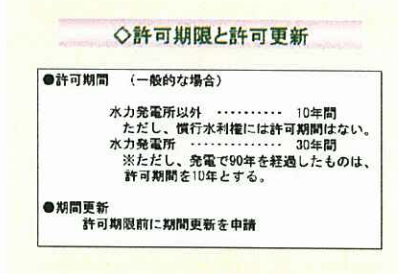 ◇許可期限と許可更新
●許可期間 （一般的な場合）
水力発電所以外 ・・・・・・・・・・ 10年間
ただし、慣行水利権には許可期間はない。
水力発電所 ・・・・・・・・・・・・・・ 30年間
※ただし、発電で90年を経過したものは、
許可期間を10年とする。
●期間更新
許可期限前に期間更新を申請